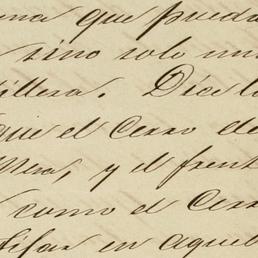 una que pueda
sino solo una
tillera. Dice l
que el Cerro de
y el frent
como el Cerr
en aquel